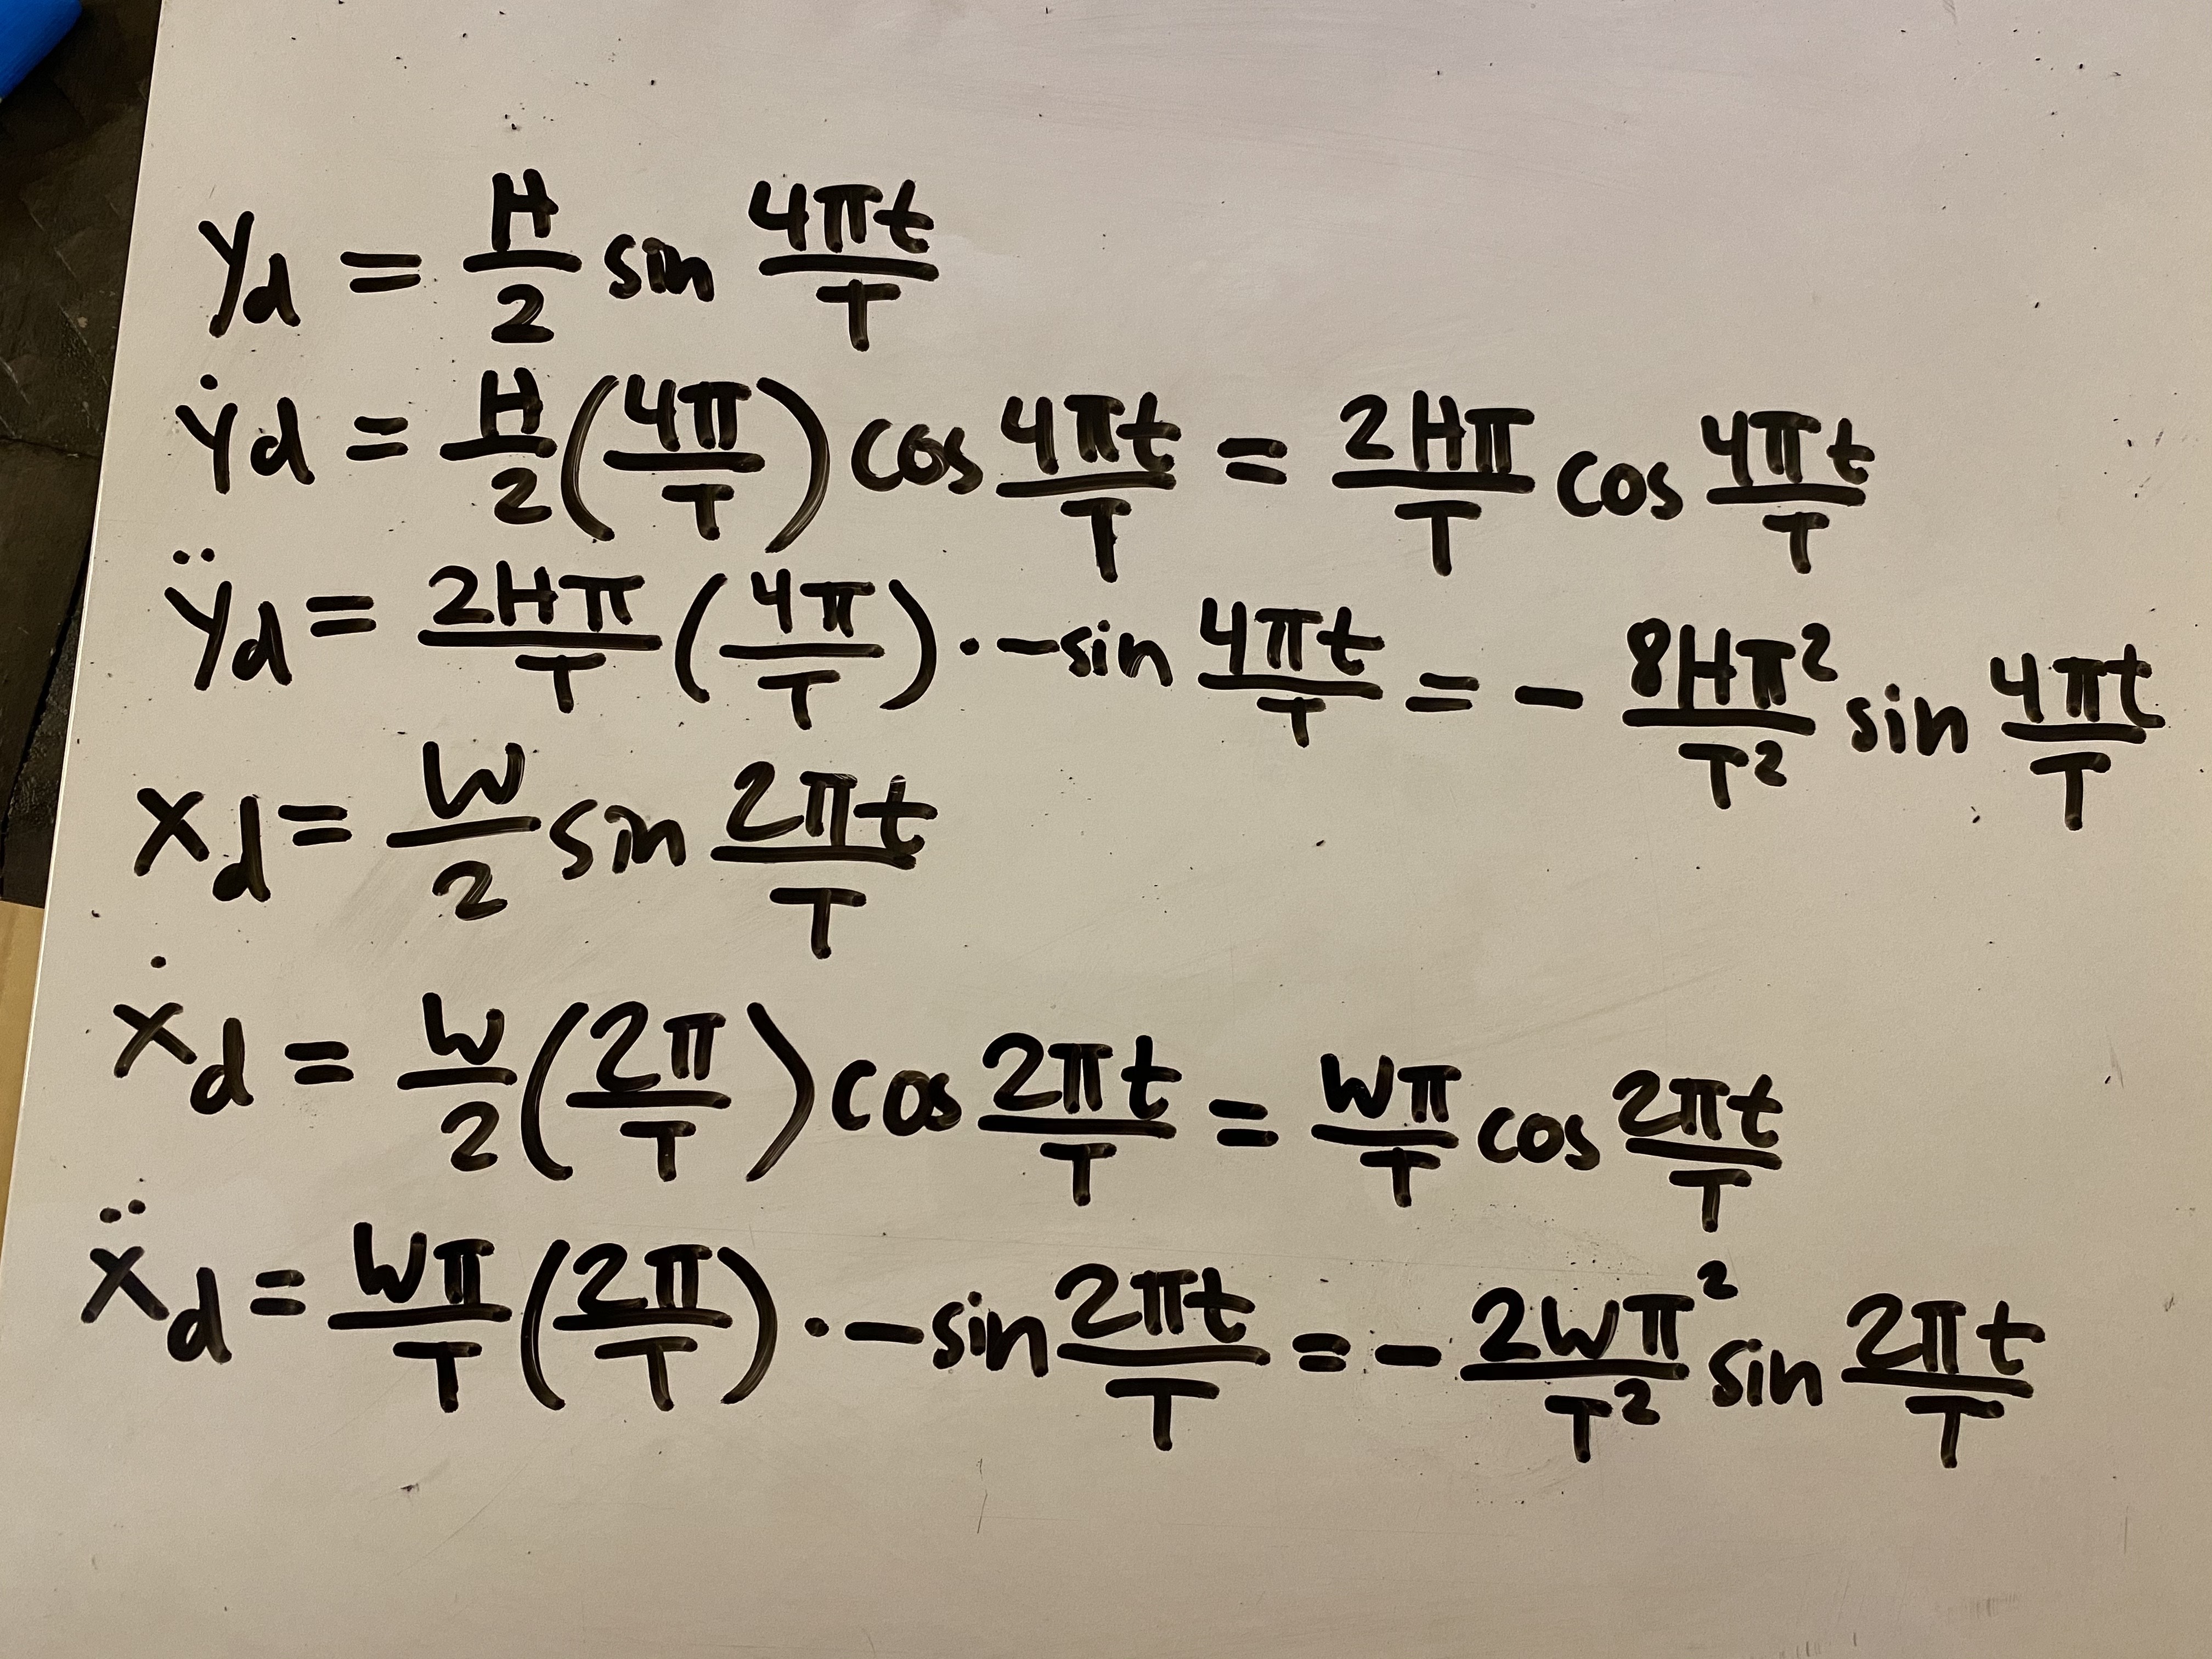 y_d = H/2 sin 4πt/T
ẏ_d = H/2 (4π/T) cos 4πt/T = 2Hπ/T cos 4πt/T
ÿ_d = 2Hπ/T (4π/T) · -sin 4πt/T = - 8Hπ²/T² sin 4πt/T
x_d = W/2 sin 2πt/T
ẋ_d = W/2 (2π/T) cos 2πt/T = Wπ/T cos 2πt/T
ẍ_d = Wπ/T (2π/T) · -sin 2πt/T = - 2Wπ²/T² sin 2πt/T